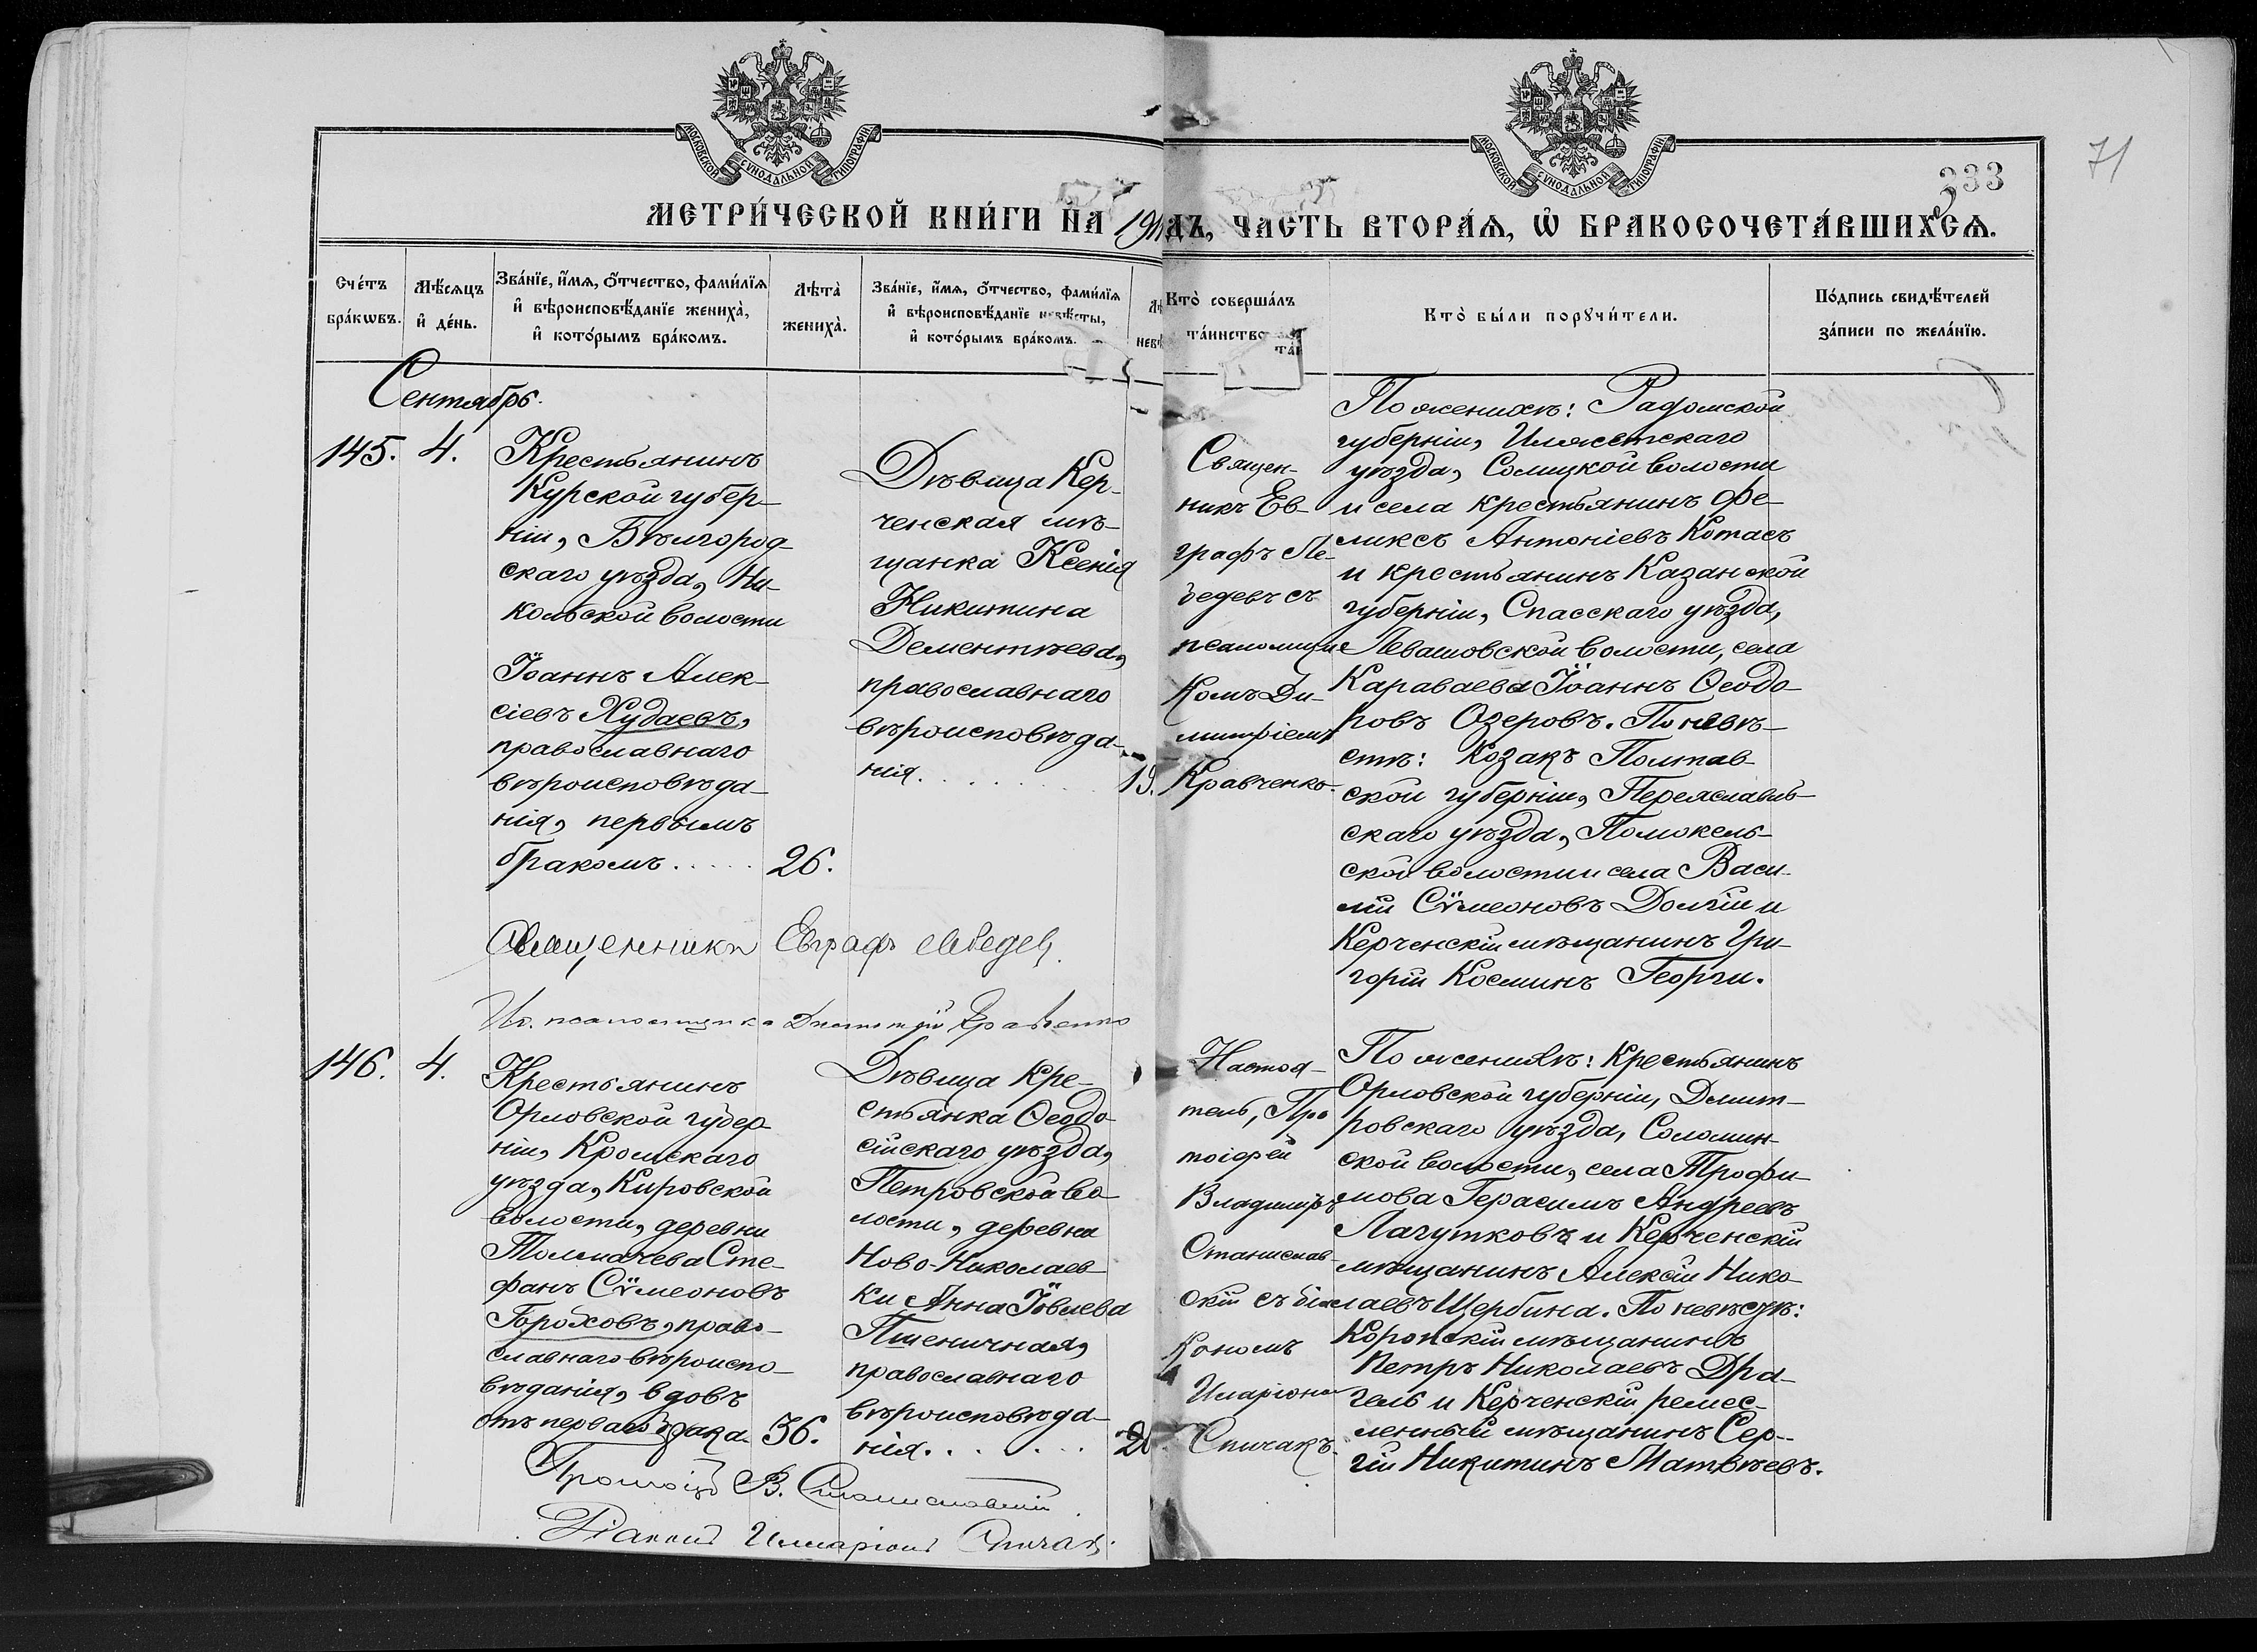 МОСКОВСКОЙ СѴНОДАЛЬНОЙ ТИПОГРАФІИ
МОСКОВСКОЙ СѴНОДАЛЬНОЙ ТИПОГРАФІИ
333
71
МЕТРИ́ЧЕСКОЙ КНИ́ГИ НА 191
ДЪ, ЧАСТЬ ВТОРА́Ѧ, Ѽ БРАКОСОЧЕТА́ВШИХСѦ.
Сче́тъ бра́кѡвъ.
Мѣ́сѧцъ и҆ де́нь.
Зва́нїе, и҆́мѧ, ѻ҆́тчество, фами́лїѧ и҆ вѣроисповѣ́данїе жениха̀, и҆ кото́рымъ бра́комъ.
Лѣта̀ жениха̀.
Зва́нїе, и҆́мѧ, ѻ҆́тчество, фами́лїѧ и҆ вѣроисповѣ́данїе невѣ́сты, и҆ кото́рымъ бра́комъ.
Лѣ невѣ
Кто̀ соверша́лъ та́инство
Кто̀ бы́ли порꙋчи́тели.
По́дпись свидѣ́телей за́писи по жела́нїю.
Сентябрь.
145. 4.
Крестьянинъ
Курской губер-
ніи, Бѣлгород-
скаго уѣзда, Ни-
кольской волости
Іоаннъ Алек-
сіевъ Худаевъ,
православнаго
вѣроисповѣда-
нія, первымъ
бракомъ..... 26.
Дѣвица Кер-
ченская мѣ-
щанка Ксенія
Никитина
Дементьева,
православнаго
вѣроисповѣда-
нія. . . . . . . 19.
Священ-
никъ Ев-
графъ Ле-
бедевъ съ
псаломщи-
комъ Ди-
митріемъ
Кравченко.
По женихѣ: Радомской
губерніи, Илжетскаго
уѣзда, Солицкой волости
и села крестьянинъ Фе-
ликсъ Антоніевъ Котасъ
и крестьянинъ Казанской
губерніи, Спасскаго уѣзда,
Левашовской волости, села
Караваева Іоаннъ Ѳеодо-
ровъ Озеровъ. По невѣ-
стѣ: Козакъ Полтав-
ской губерніи, Переяславль-
скаго уѣзда, Помокель-
ской волости и села Васи-
лій Сѵмеоновъ Долгій и
Керченскій мѣщанинъ Гри-
горій Косминъ Георги.
Священникъ Евграфъ Лебедев.
Ис. псаломщика Димитрій Кравченко
146. 4.
Крестьянинъ
Орловской губер-
ніи, Кромскаго
уѣзда, Кировской
волости, деревни
Толмачева Сте-
фанъ Сѵмеоновъ
Гороховъ, право-
славнаго вѣроиспо-
вѣданія, вдовъ
отъ перваго брака. 36.
Дѣвица Кре-
стьянка Ѳеодо-
сійскаго уѣзда,
Петровской во-
лости, деревни
Ново-Николаев-
ки Анна Іовлева
Пшеничная,
православнаго
вѣроисповѣда-
нія. . . . . .
Настоя-
тель, Про-
тоіерей
Владиміръ
Станислав-
скій съ діа-
кономъ
Иларіономъ
Спичакъ.
По женихѣ: Крестьянинъ
Орловской губерніи, Дмит-
ровскаго уѣзда, Соломин-
ской волости, села Трофи-
мова Герасимъ Андреевъ
Лагутковъ и Керченскій
мѣщанинъ Алексій Нико-
лаевъ Щербина. По невѣстѣ:
Коропскій мѣщанинъ
Петръ Николаевъ Дра-
гель и Керченскій ремес-
ленный мѣщанинъ Сер-
гій Никитинъ Матвѣевъ.
Протоіер В. Станиславскій
Діаконъ Иларіонъ Спичакъ.